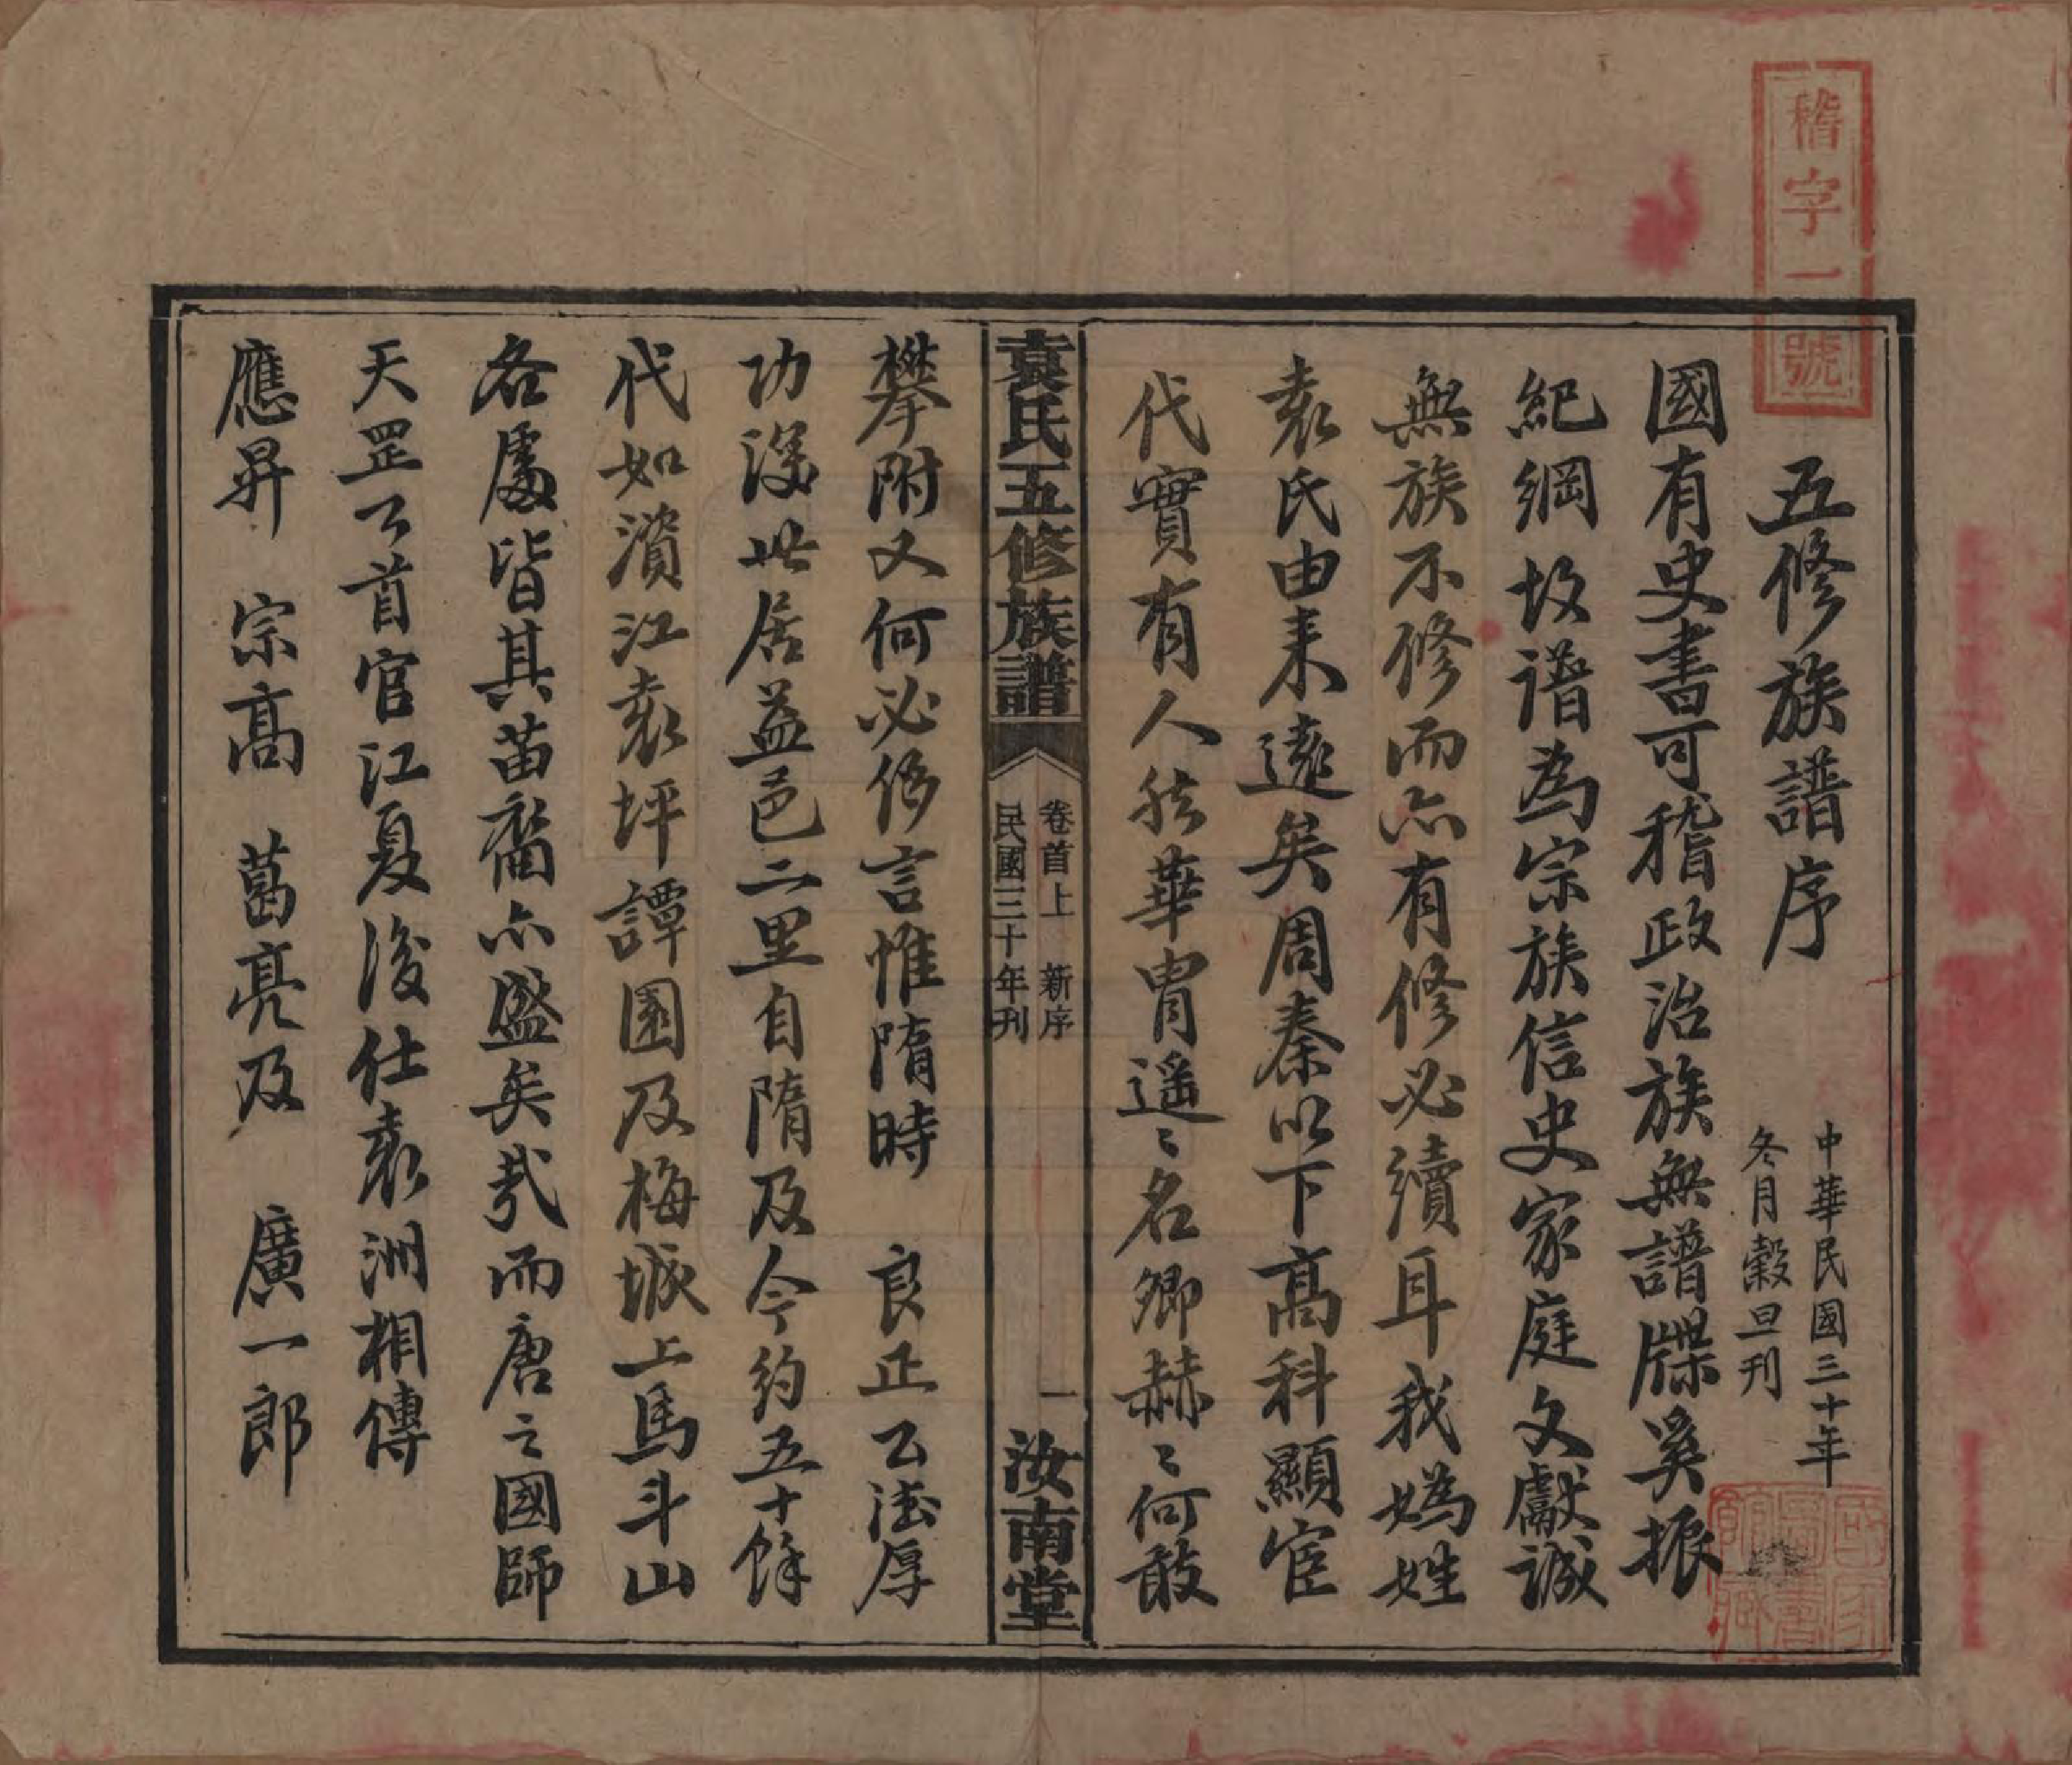 稽字一號
五修族譜序
中華民國三十年
冬月穀旦刊
國有史書可稽政治族無譜牒奚振
紀綱故譜為宗族信史家庭文獻誠
無族不修而亦有修必續耳我媯姓
袁氏由来遠矣周秦以下高科顯宦
代實有人然華胄遥〻名卿赫〻何敢
袁氏五修族譜
卷首上 新序
民國三十年刊
一
汝南堂
攀附又何必侈言惟隋時 良正公德厚
功深世居益邑二里自隋及今約五十餘
代如濱江袁坪譚園及梅城上馬斗山
各處皆其苗裔亦盛矣哉而唐之國師
天罡公首官江夏後仕袁洲相傳
應昇 宗髙 葛亮及 廣一郎